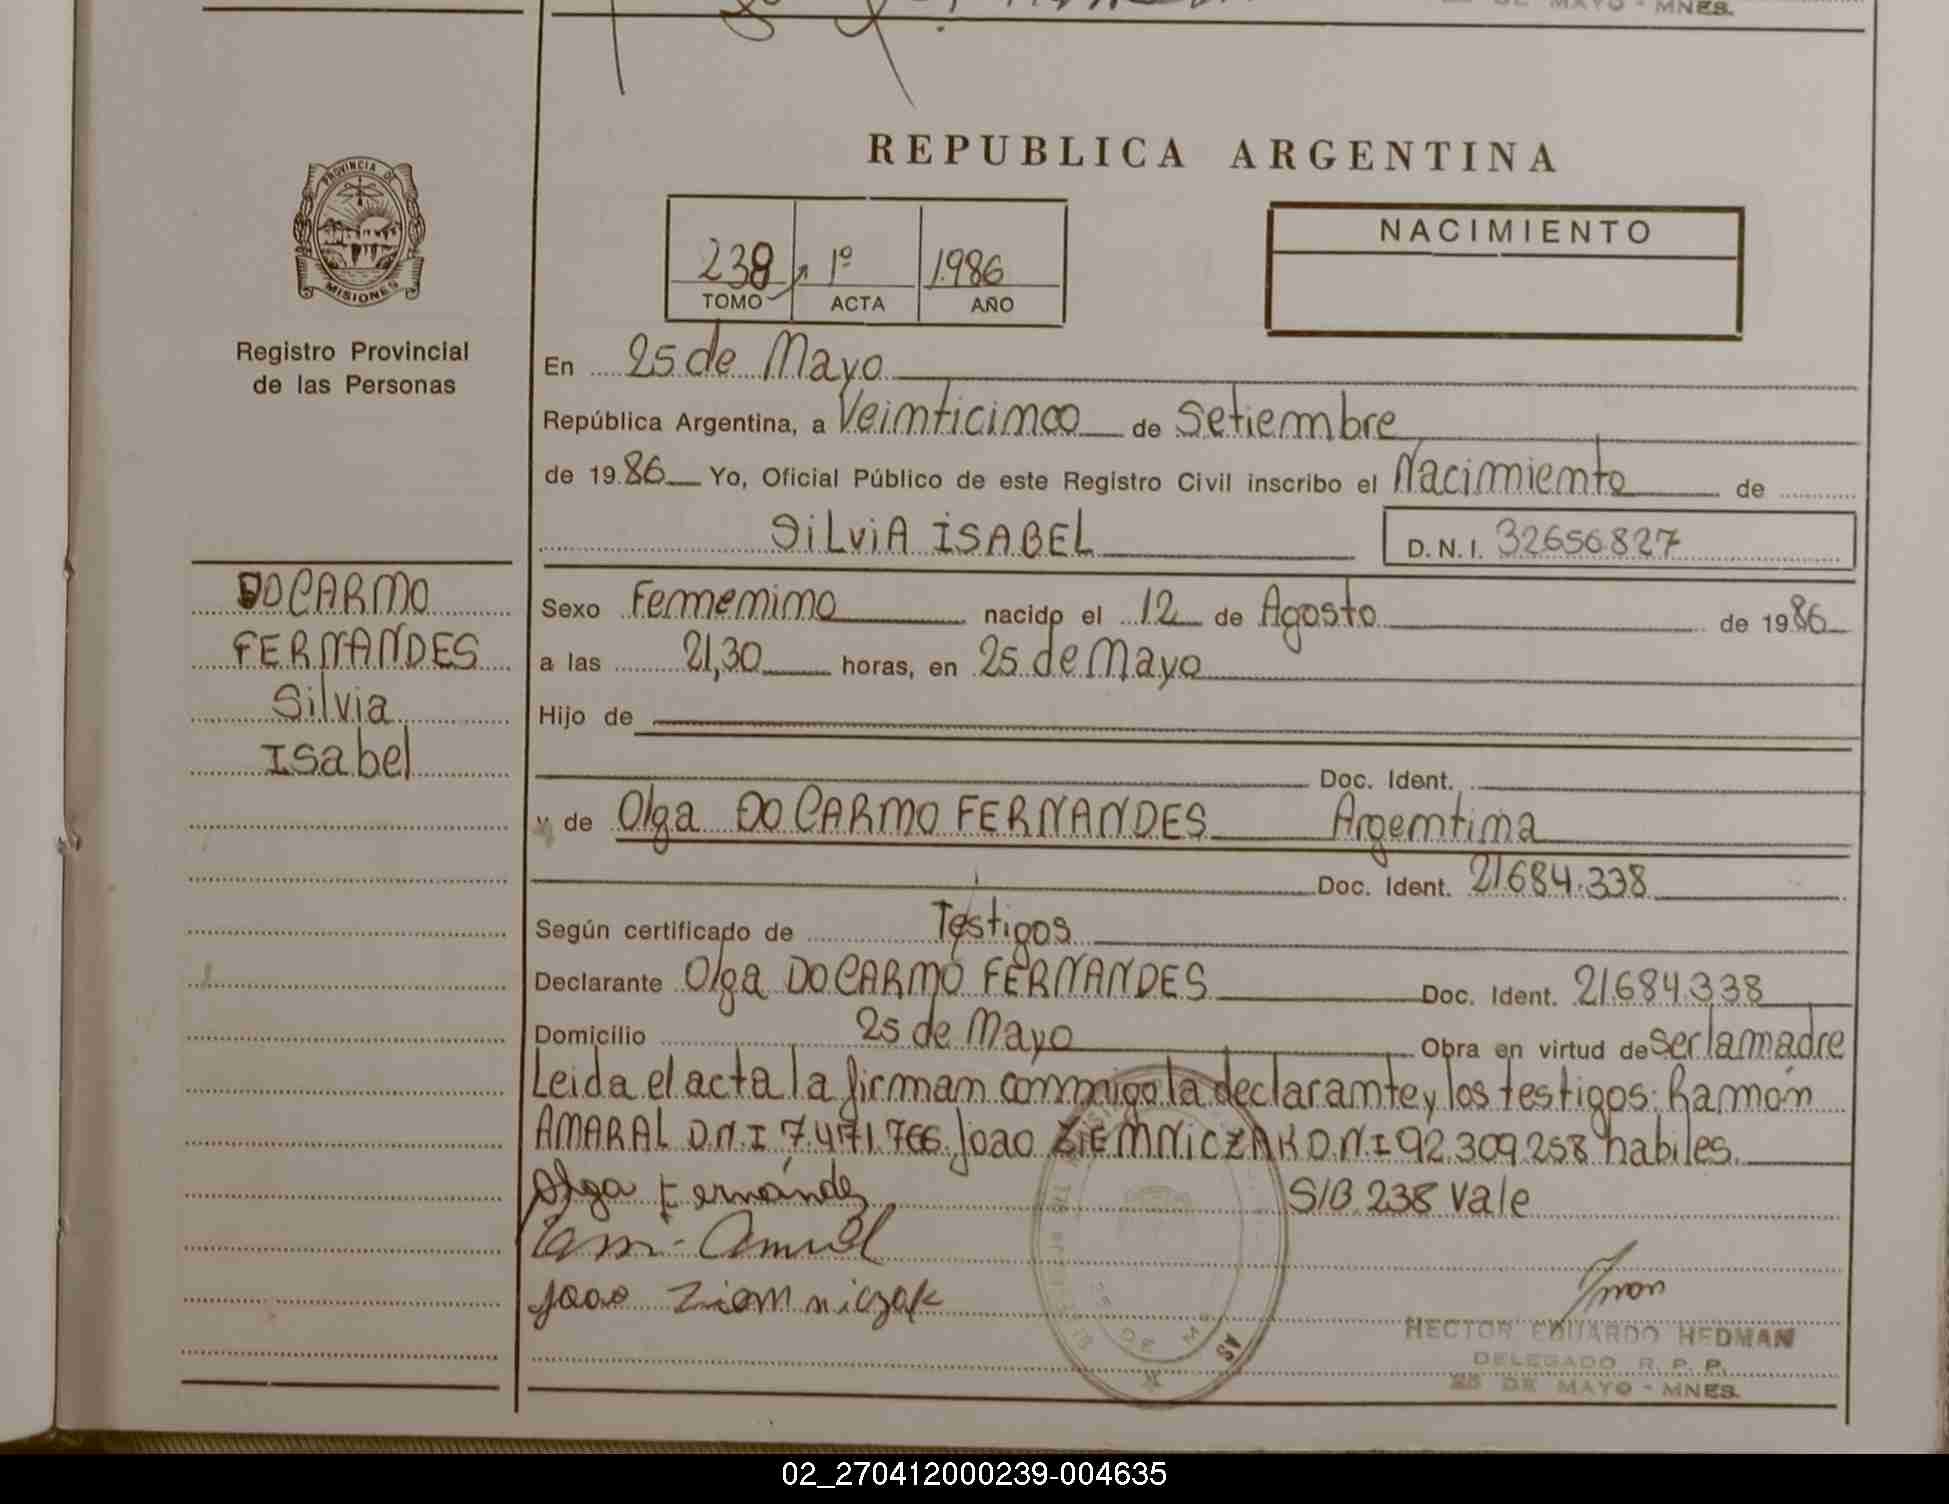 DE MAYO - MNES.
REPUBLICA ARGENTINA
PROVINCIA DE
MISIONES
Registro Provincial
de las Personas
238 1º 1986
TOMO ACTA AÑO
NACIMIENTO
En 25 de Mayo
República Argentina, a Veinticinco de Setiembre
de 1986 Yo, Oficial Público de este Registro Civil inscribo el Nacimiento de
SILVIA ISABEL D.N.I. 32656827
DO CARMO
FERNANDES
Silvia
Isabel
Sexo Femenino nacido el 12 de Agosto de 1986
a las 21,30 horas, en 25 de Mayo
Hijo de
Doc. Ident.
y de Olga DO CARMO FERNANDES Argentina
Doc. Ident. 21684.338
Según certificado de Testigos
Declarante Olga DO CARMO FERNANDES Doc. Ident. 21.684.338
Domicilio 25 de Mayo Obra en virtud de ser la madre
Leida el acta la firman conmigo la declarante y los testigos: Ramón
AMARAL D.N.I 7.471.766. Joao ZIEMNICZAK D.N.I 92.309.258 habiles.
Olga Fernández S/B 238 Vale
Joao Ziemniczak
HECTOR EDUARDO HEDMAN
DELEGADO R. P. P.
25 DE MAYO - MNES.
02_270412000239-004635